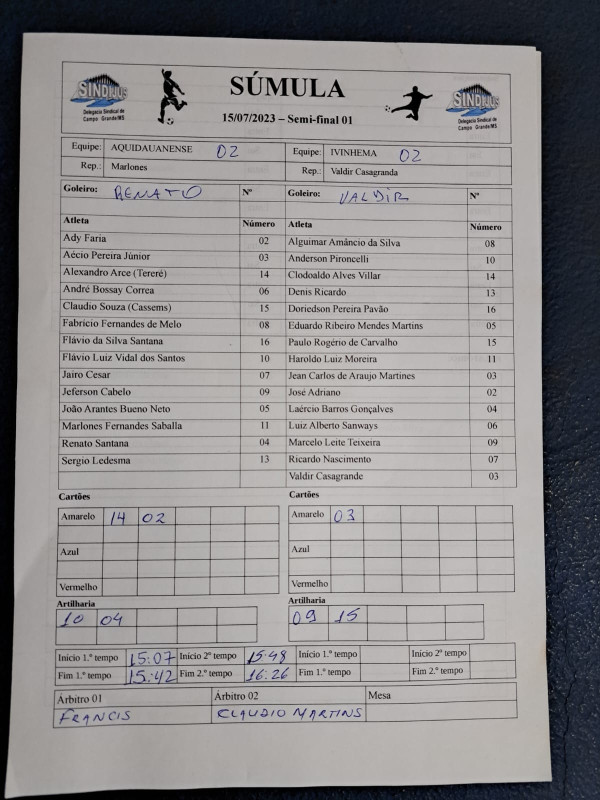 SÚMULA
15/07/2023 – Semi-final 01
SINDIJUS
Delegacia Sindical de
Campo Grande/MS
SINDIJUS
Delegacia Sindical de
Campo Grande/MS
Equipe: AQUIDAUANENSE 02 Equipe: IVINHEMA 02
Rep.: Marlones Rep.: Valdir Casagranda
Goleiro: RENATO Nº Goleiro: VALDIR Nº
Atleta Número Atleta Número
Ady Faria 02 Alguimar Amâncio da Silva 08
Aécio Pereira Júnior 03 Anderson Pironcelli 10
Alexandro Arce (Tereré) 14 Clodoaldo Alves Villar 14
André Bossay Correa 06 Denis Ricardo 13
Claudio Souza (Cassems) 15 Doriedson Pereira Pavão 16
Fabricio Fernandes de Melo 08 Eduardo Ribeiro Mendes Martins 05
Flávio da Silva Santana 16 Paulo Rogério de Carvalho 15
Flávio Luiz Vidal dos Santos 10 Haroldo Luiz Moreira 11
Jairo Cesar 07 Jean Carlos de Araujo Martines 03
Jeferson Cabelo 09 José Adriano 02
João Arantes Bueno Neto 05 Laércio Barros Gonçalves 04
Marlones Fernandes Saballa 11 Luiz Alberto Sanways 06
Renato Santana 04 Marcelo Leite Teixeira 09
Sergio Ledesma 13 Ricardo Nascimento 07
Valdir Casagrande 03
Cartões Cartões
Amarelo 14 02 Amarelo 03
Azul Azul
Vermelho Vermelho
Artilharia Artilharia
10 04 09 15
Início 1.º tempo 15:07 Início 2º tempo 15:48 Início 1.º tempo Início 2º tempo
Fim 1.º tempo 15:42 Fim 2.º tempo 16:26 Fim 1.º tempo Fim 2.º tempo
Árbitro 01 Árbitro 02 Mesa
FRANCIS CLAUDIO MARTINS